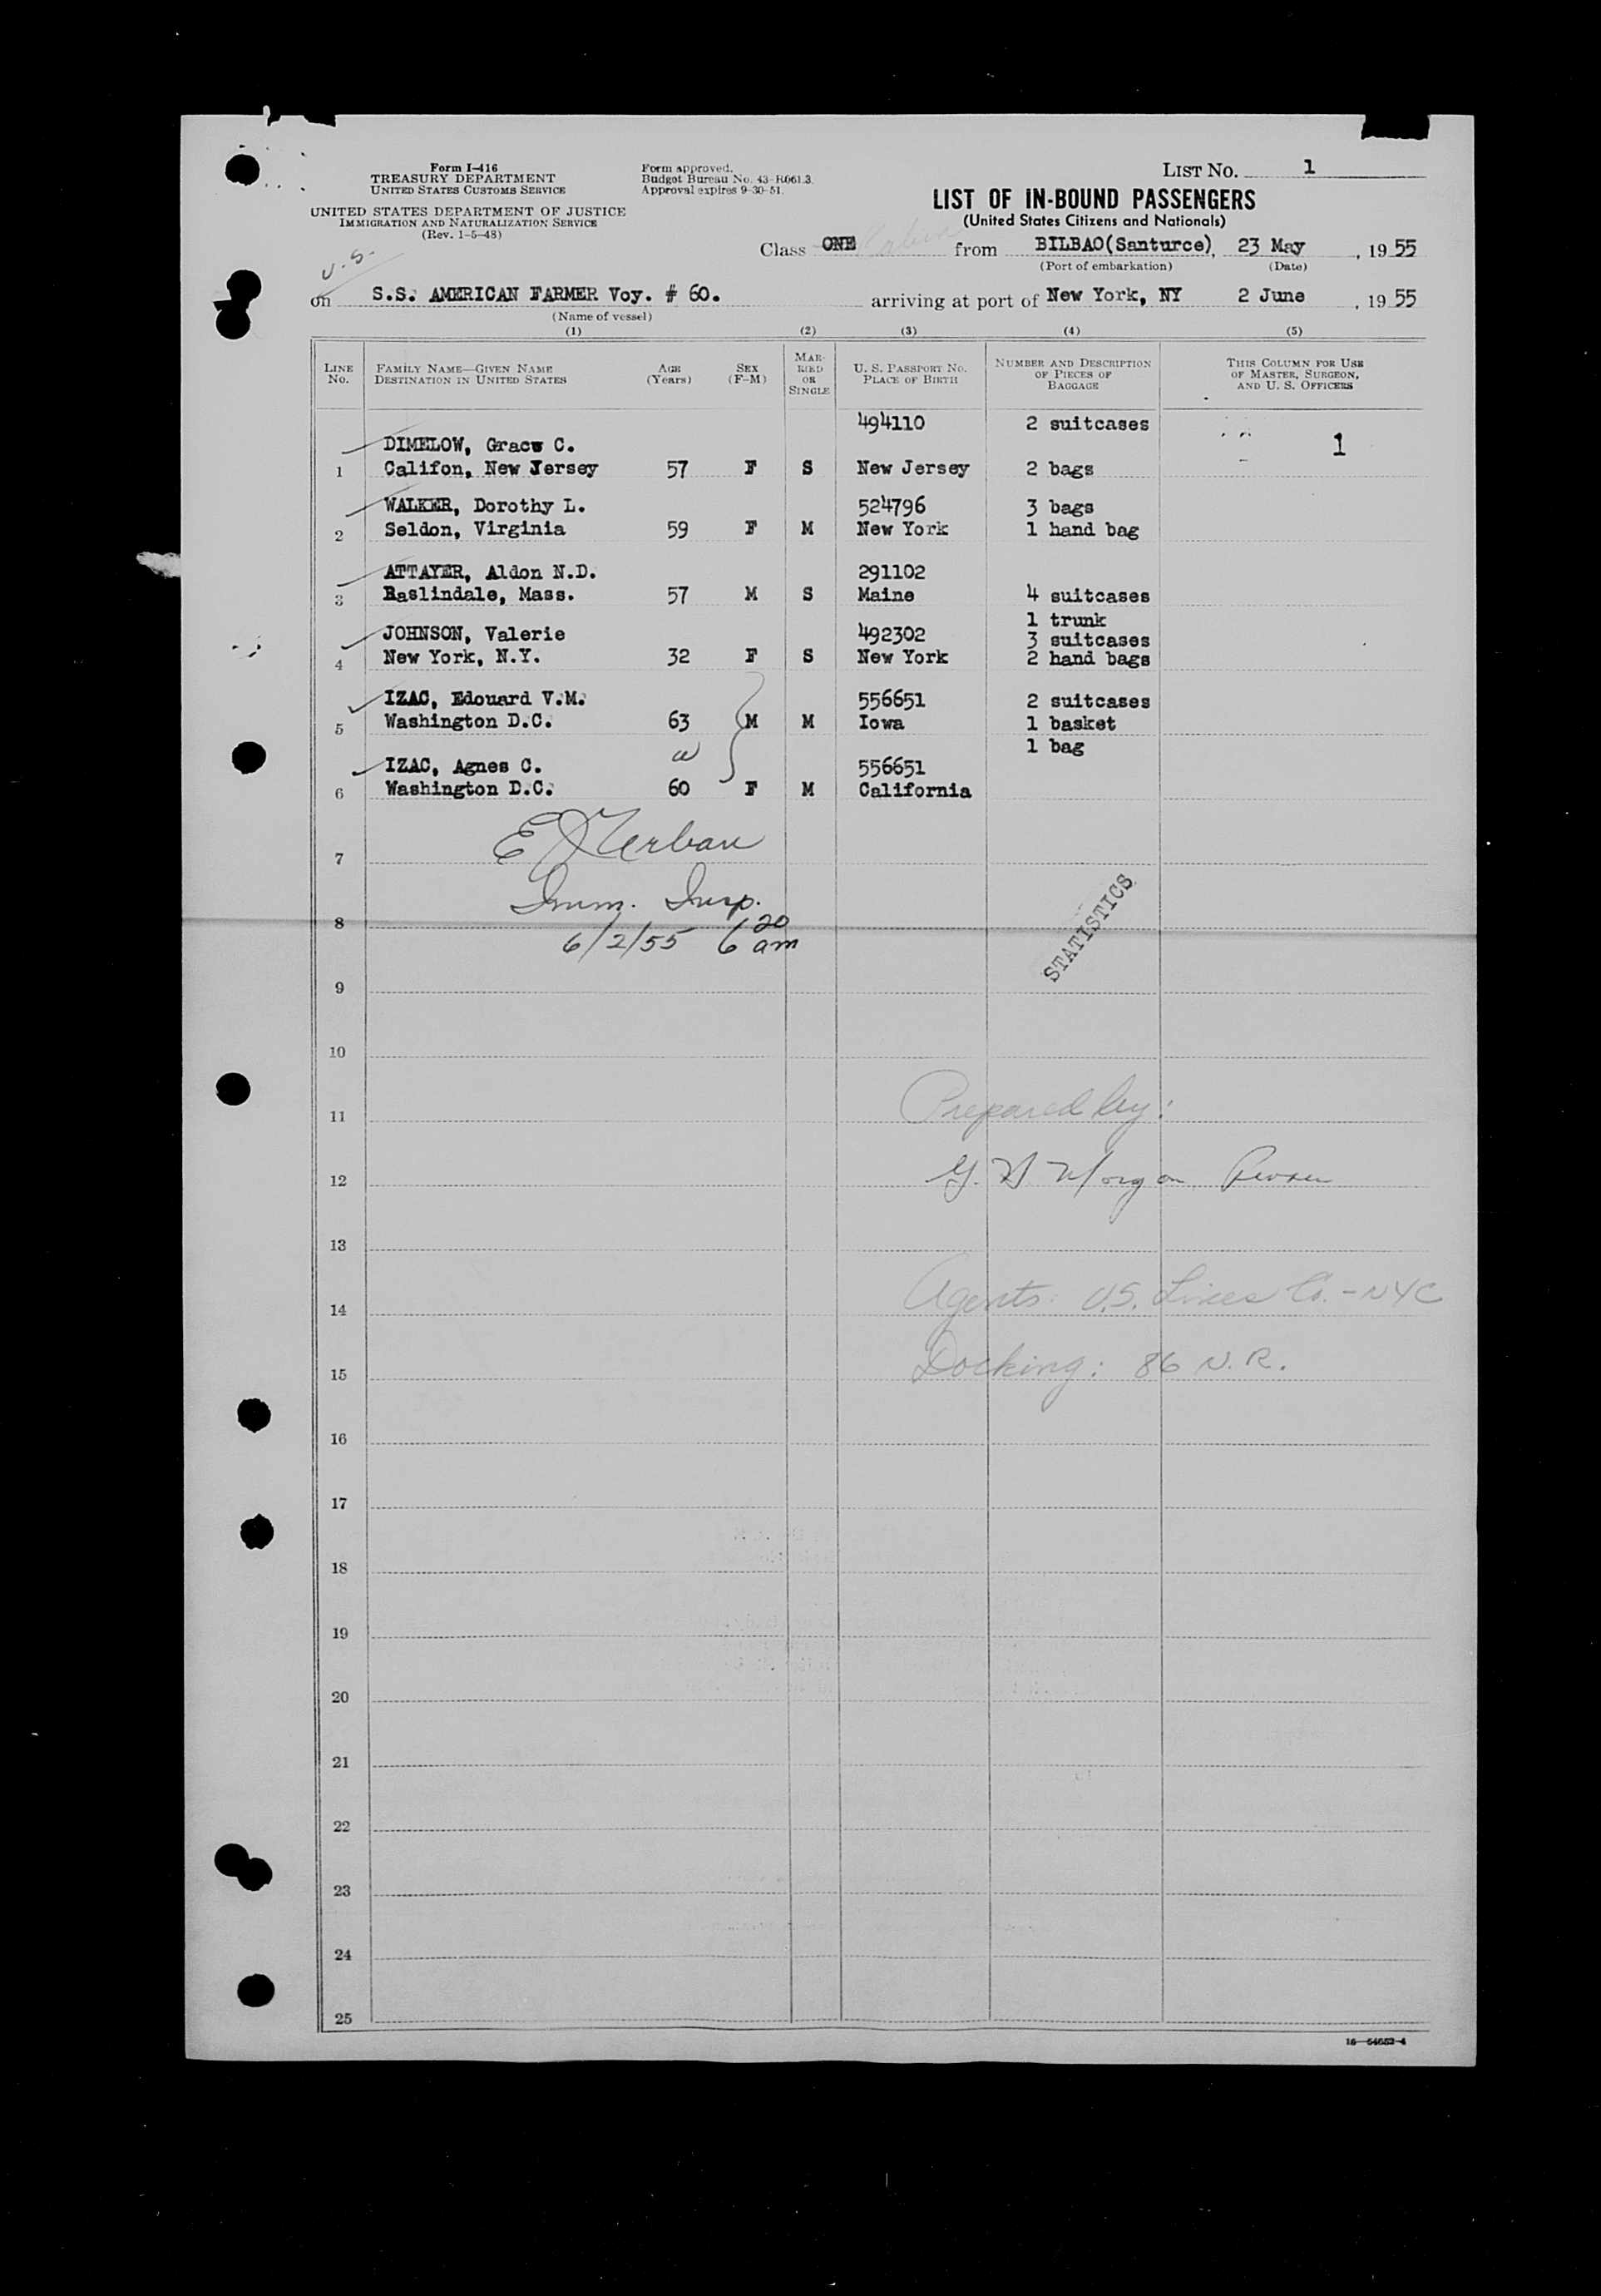 Form I-416
TREASURY DEPARTMENT
UNITED STATES CUSTOMS SERVICE
UNITED STATES DEPARTMENT OF JUSTICE
IMMIGRATION AND NATURALIZATION SERVICE
(Rev. 1-5-48)
Form approved.
Budget Bureau No. 43-R061.3.
Approval expires 9-30-51.
LIST NO. 1
LIST OF IN-BOUND PASSENGERS
(United States Citizens and Nationals)
Class ONE from BILBAO(Santurce), 23 May, 1955
(Port of embarkation) (Date)
U.S.
on S.S. AMERICAN FARMER Voy. # 60. arriving at port of New York, NY 2 June, 1955
(Name of vessel)
(1) (2) (3) (4) (5)
LINE NO.
FAMILY NAME—GIVEN NAME
DESTINATION IN UNITED STATES
AGE
(Years)
SEX
(F-M)
MARRIED OR SINGLE
U. S. PASSPORT NO.
PLACE OF BIRTH
NUMBER AND DESCRIPTION
OF PIECES OF
BAGGAGE
THIS COLUMN FOR USE
OF MASTER, SURGEON,
AND U. S. OFFICERS
494110 2 suitcases
DIMELOW, Grace C. 1
1 Califon, New Jersey 57 F S New Jersey 2 bags
WALKER, Dorothy L. 524796 3 bags
2 Seldon, Virginia 59 F M New York 1 hand bag
ATTAYER, Aldon N.D. 291102
3 Raslindale, Mass. 57 M S Maine 4 suitcases
1 trunk
JOHNSON, Valerie 492302 3 suitcases
4 New York, N.Y. 32 F S New York 2 hand bags
IZAC, Edouard V.M. 556651 2 suitcases
5 Washington D.C. 63 M M Iowa 1 basket
1 bag
IZAC, Agnes C. 556651
6 Washington D.C. 60 F M California
7
Imm. Insp.
8
6/2/55 6 20 am
STATISTICS
9
10
11 Prepared by:
12 Morgan Purser
13
14 Agents: U.S. Lines Co. - NYC
15 Docking: 86 N.R.
16
17
18
19
20
21
22
23
24
25
16—54652-4